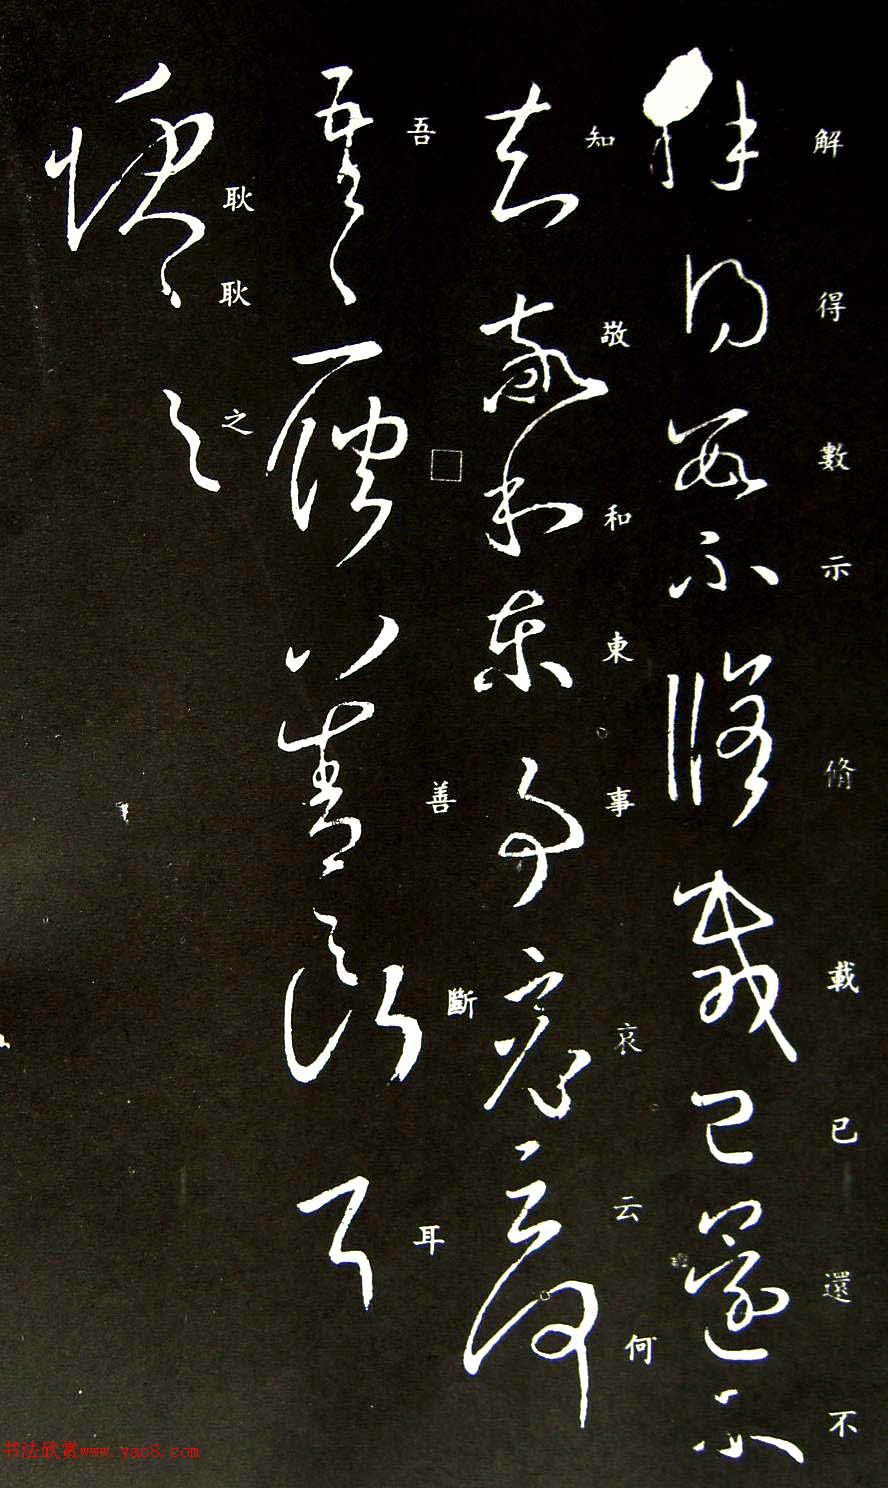 解得數示脩載已還不
知敬和東事哀云何
吾□善斷耳
耿耿之
书法欣赏www.yac8.com